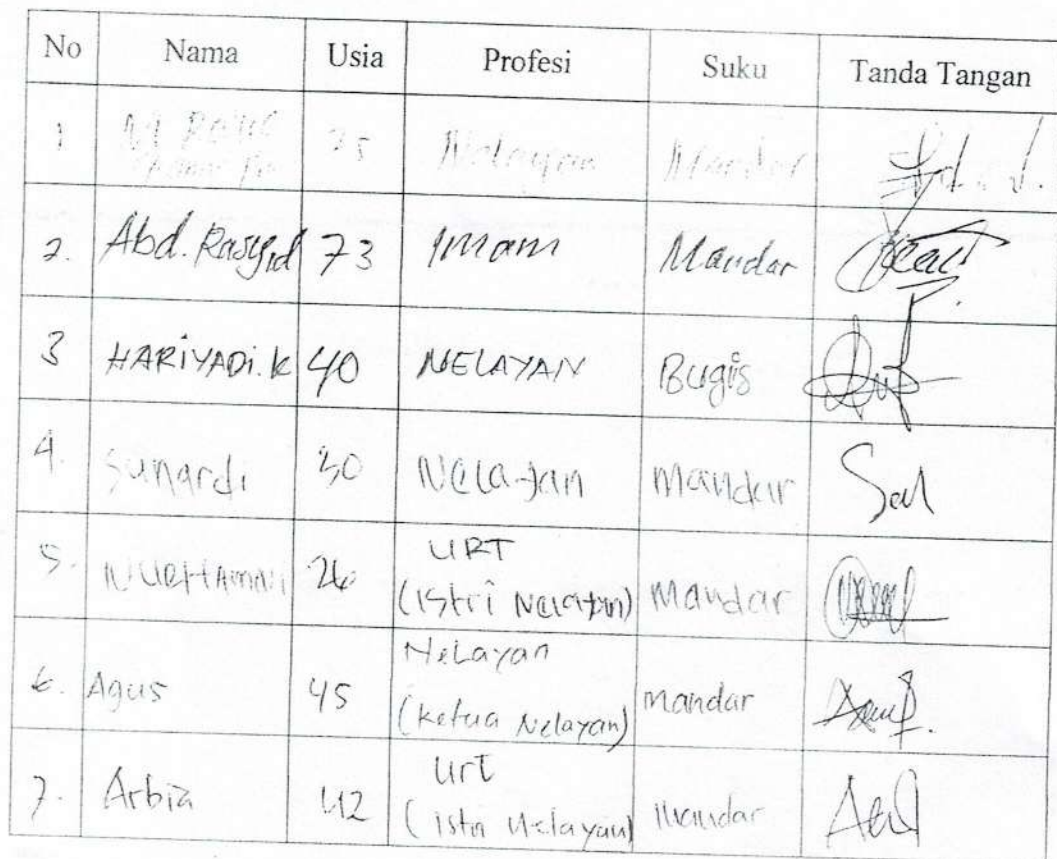 No Nama Usia Profesi Suku Tanda Tangan
1 M 75 Nelayan Mandar
2. Abd. Rasyid 73 Imam Mandar
3 HARiYADi. K 40 NELAYAN Bugis
4. Sunardi 30 Nelayan Mandar
5. NURHAMNI 26 URT
(istri Nelayan) Mandar
6. Agus 45 Nelayan
(ketua Nelayan) mandar
7. Arbia 42 Urt
(istri Nelayan) mandar